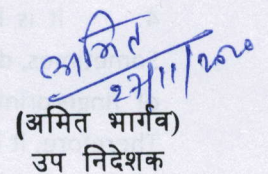 अमित
27/11/2020
(अमित भार्गव)
उप निदेशक